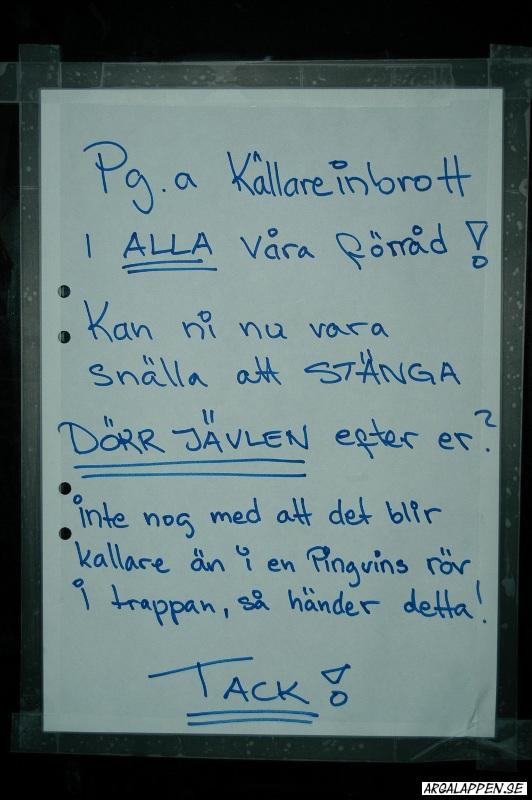 Pg.a Källareinbrott
I ALLA våra förråd!
Kan ni nu vara
snälla att STÄNGA
DÖRR JÄVLEN efter er?
inte nog med att det blir
kallare än i en Pingvins röv
i trappan, så händer detta!
TACK!
ARGALAPPEN.SE